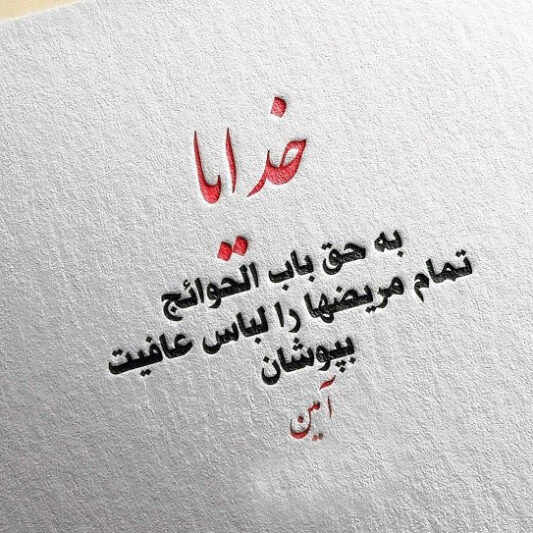 خدایا
به حق باب الحوائج
تمام مریضها را لباس عافیت
بپوشان
آمین